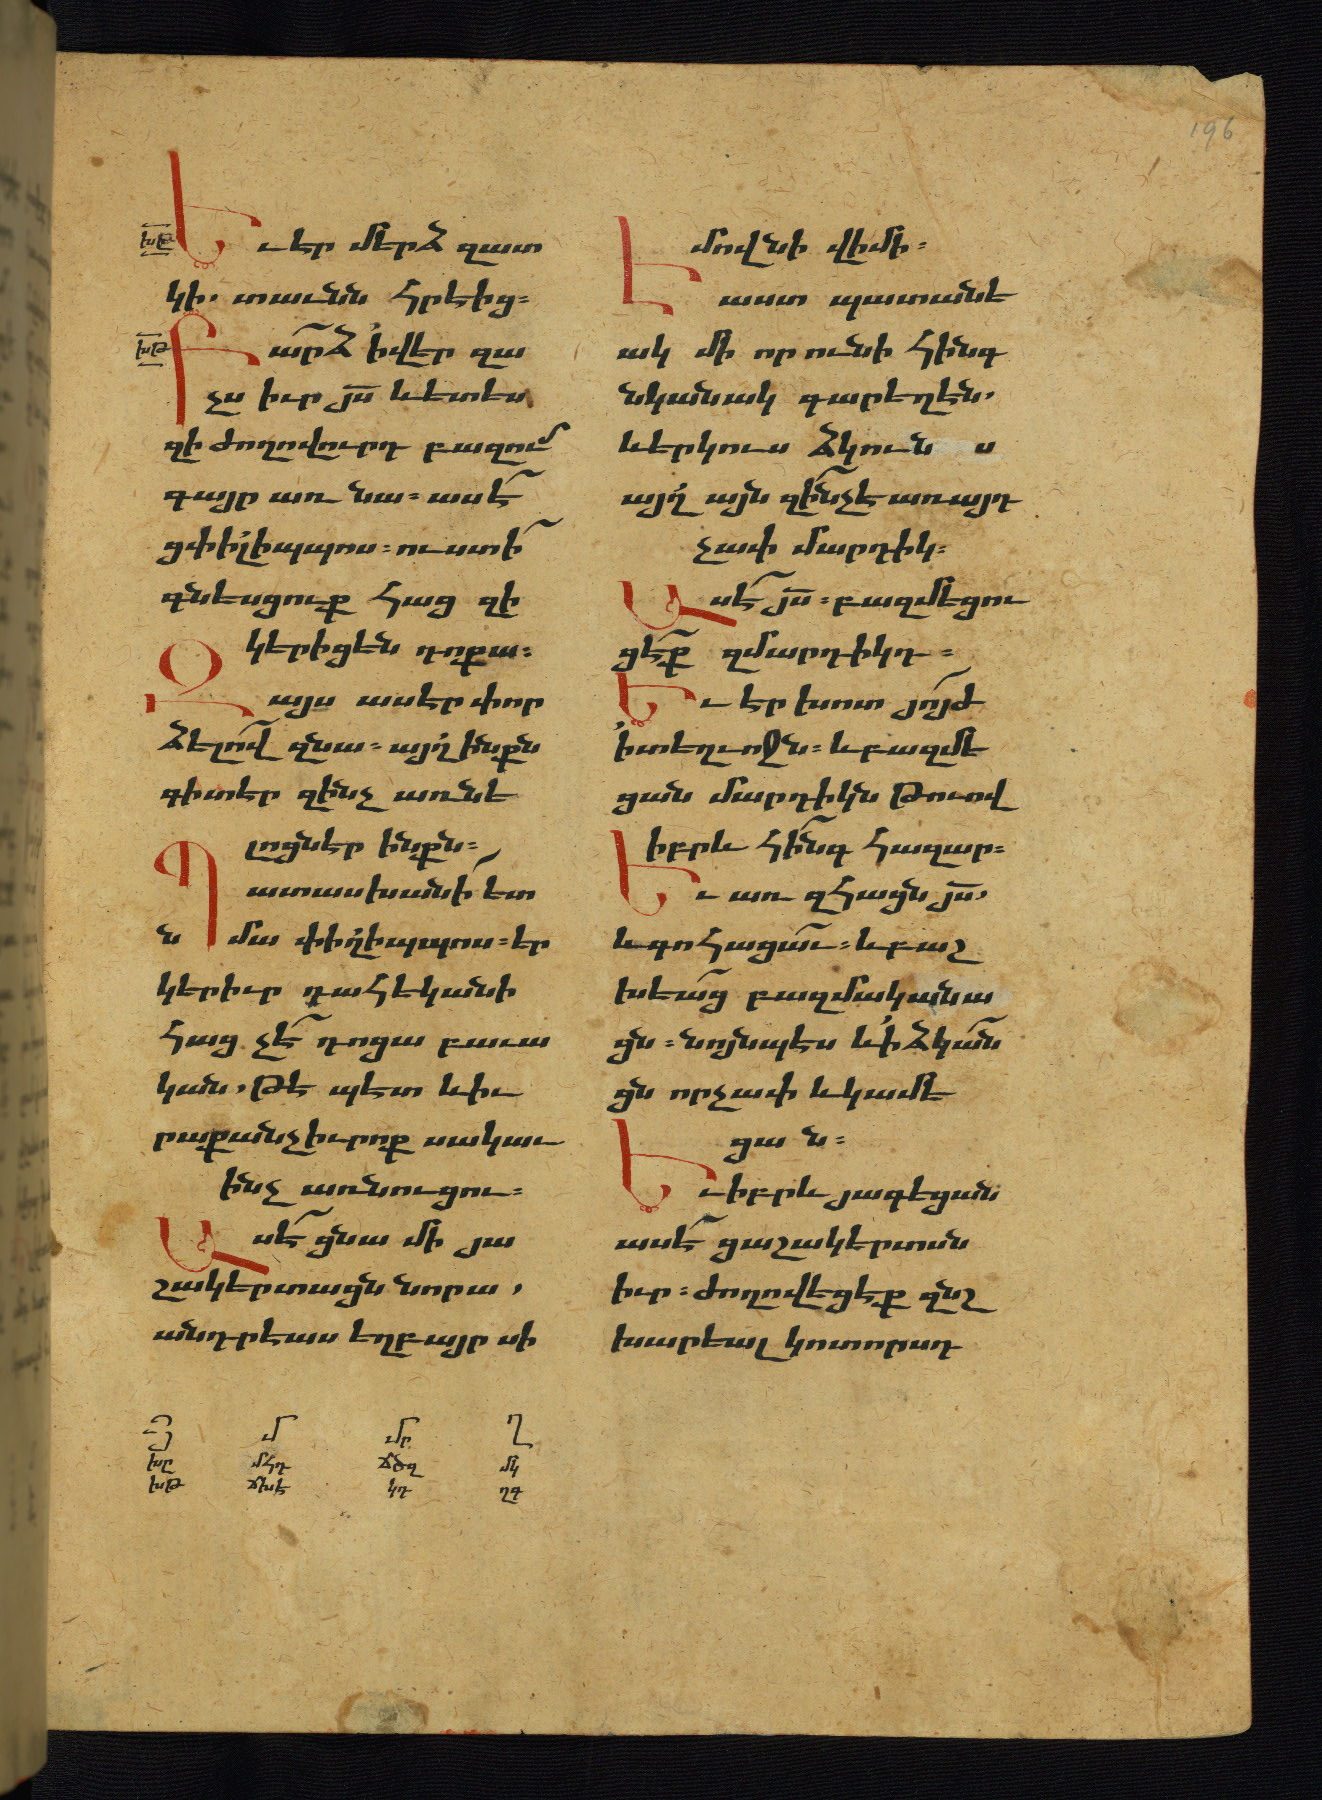 196
խը
Եւ էր մերձ զատ
կի. տաւնն հրէից։
խթ
Բարձ ի վեր զա
չս իւր յս և ետես
զի ժողովուրդ բազում
գայր առ նա։ ասէ
ցփիլիպպոս։ ուստի
գնեսցուք հաց զի
կերիցեն դոքա։
Զայս ասէր փոր
ձելով զնա։ այղ ինքն
գիտէր զինչ առնե
լոցներ ինքն։
Պատասխանի ետ
նմա փիղիպպոս։ եր
կերիւր դահեկանի
հաց չէ դոցա բաւա
կան, թէ պէտ և իւ
րաքանչիւրոք սակաւ
ինչ առնուցու։
Ասէ ցնա մի յա
շակերտացն նորա,
անդրէաս եղբայր սի
մովնի վիմի։
Է աստ պատանե
ակ մի որ ունի հինգ
նկանակ գարեղէն,
և երկուս ձկունս
այղ այն զինչ է առ այդ
չափ մարդիկ։
Ասէ յս։ բազմեցու
ցէք զմարդիկդ։
Եւ էր խոտ յոյժ
ի տեղւոջն։ և բազմե
ցան մարդիկն թուով
իբրև հինգ հազար։
Եւ առ զհացն յս,
և գոհացաւ։ և բաշ
խեաց բազմականա
ցն։ նոյնպէս և ի ձկան
ցն որչափ և կամե
ցան։
Եւ իբրև յագեցան
ասէ ցաշակերտսն
իւր։ ժողովեցեք զնշ
խարեալ կոտորսդ
մ
մր
ղ
խը
մհդ
ճծզ
մկ
խթ
ճխէ
կդ
ղգ